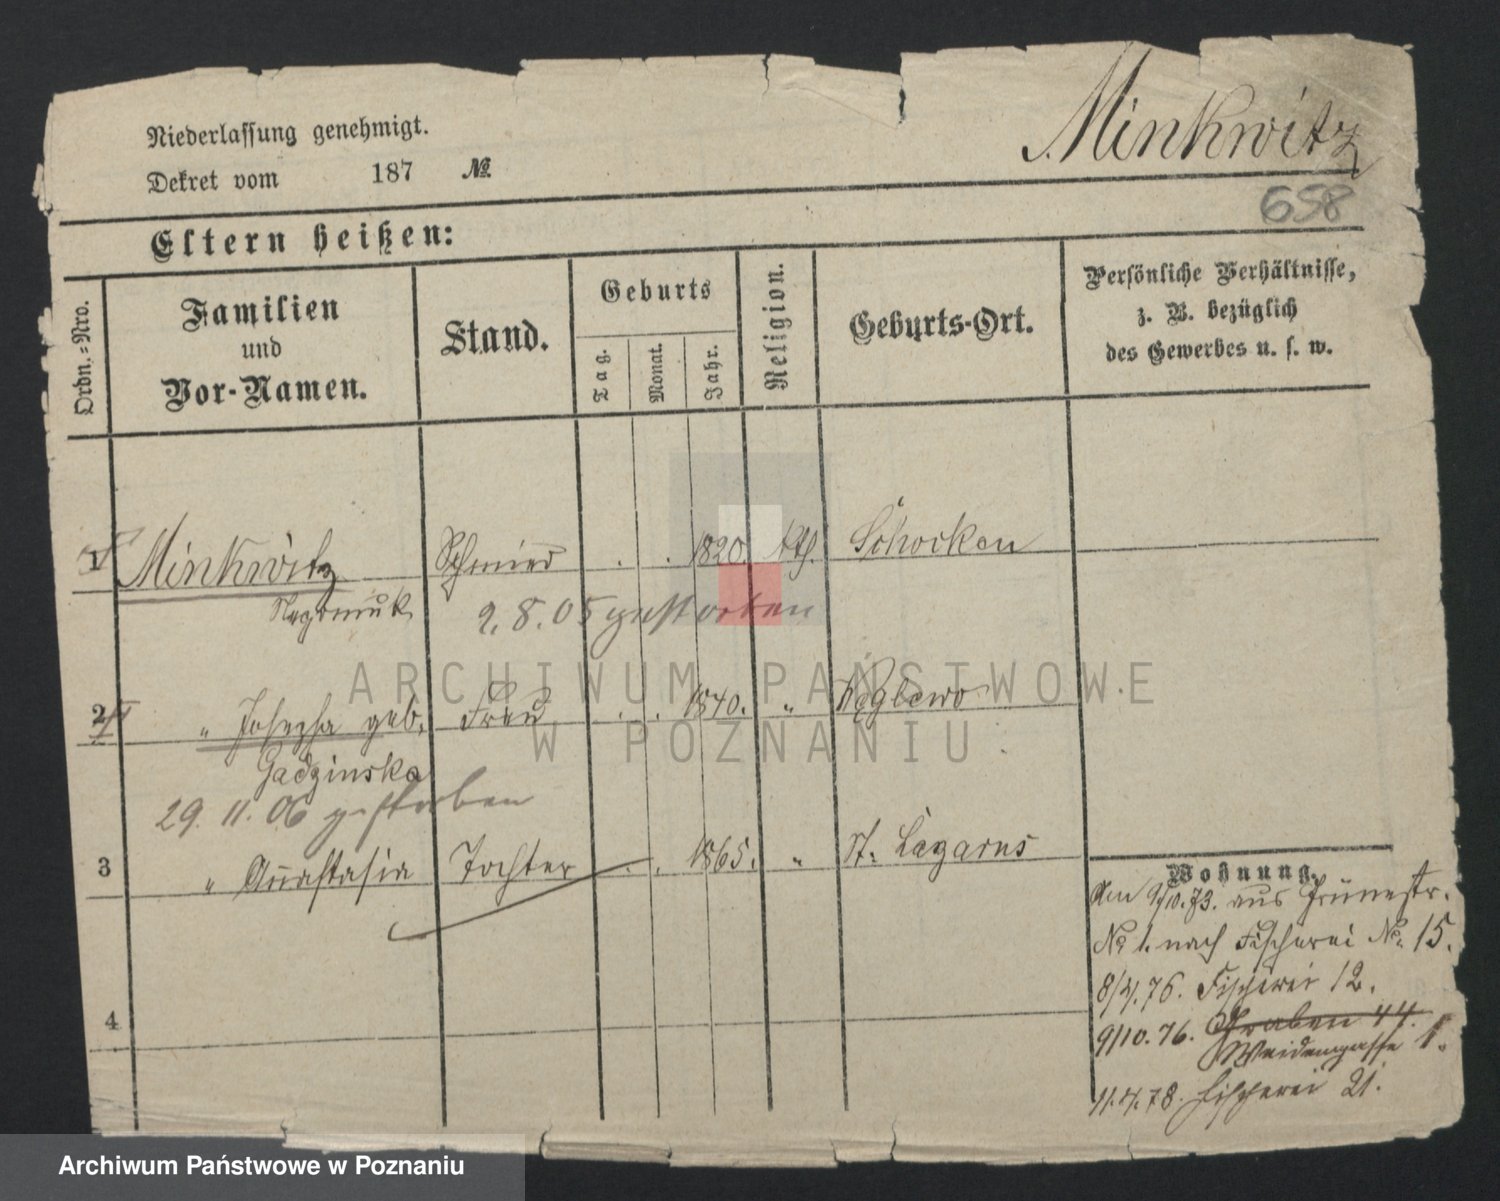 Niederlassung genehmigt.
Dekret vom 187 №
Minkwitz
658
Eltern heißen:
Ordn.=Nro.
Familien
und
Vor-Namen.
Stand.
Geburts
Tag.
Monat.
Jahr.
Religion.
Geburts-Ort.
Persönliche Verhältnisse,
z. B. bezüglich
des Gewerbes u. s. w.
1 Minkwitz Schmied . . 1820. Kth. Schocken
2.8.05 gestorben
2 " Josepha geb. Frau . . 1840. " Węglewo
Gadzinska
29.11.06 gestorben
3 " Anastasia Tochter . . 1865. " St. Lazarus
4
Wohnung.
Am 9/10.73. aus Grünestr.
No 1. nach Fischerei No. 15.
8/4.76. Fischerei 12.
9/10.76. Graben 44.
Weidengasse 1.
11.4.78. Fischerei 21.
ARCHIWUM PAŃSTWOWE
W POZNANIU
Archiwum Państwowe w Poznaniu